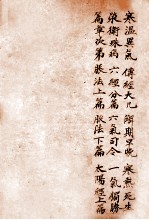 寒溫異氣 傳經大凡 解期早晚 寒熱死生
衛殊病 六經分篇 六氣司令 一氣獨勝
篇章次第 脈法上篇 脈法下篇 太陽經上篇